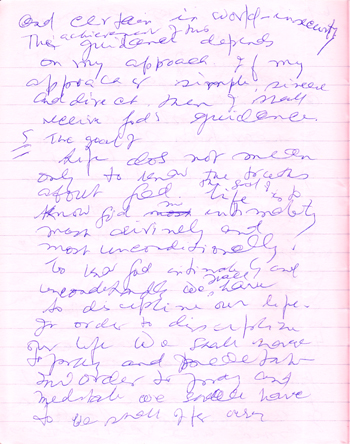 and certain in world-insecurity
achievement of this
This guidance depends
on my approach. If my
approach is simple, sincere
and direct, then I shall
receive God's guidance.
5 The goal of
life does not mean
only to know the truths
about God. The goal of life is to
know God in intimately
most divinely and
most unconditionally!
To know God intimately and
unconditionally we shall have
to discipline our life.
In order to discipline
our life we shall have
to pray and meditate
In order to pray and
meditate we shall have
to